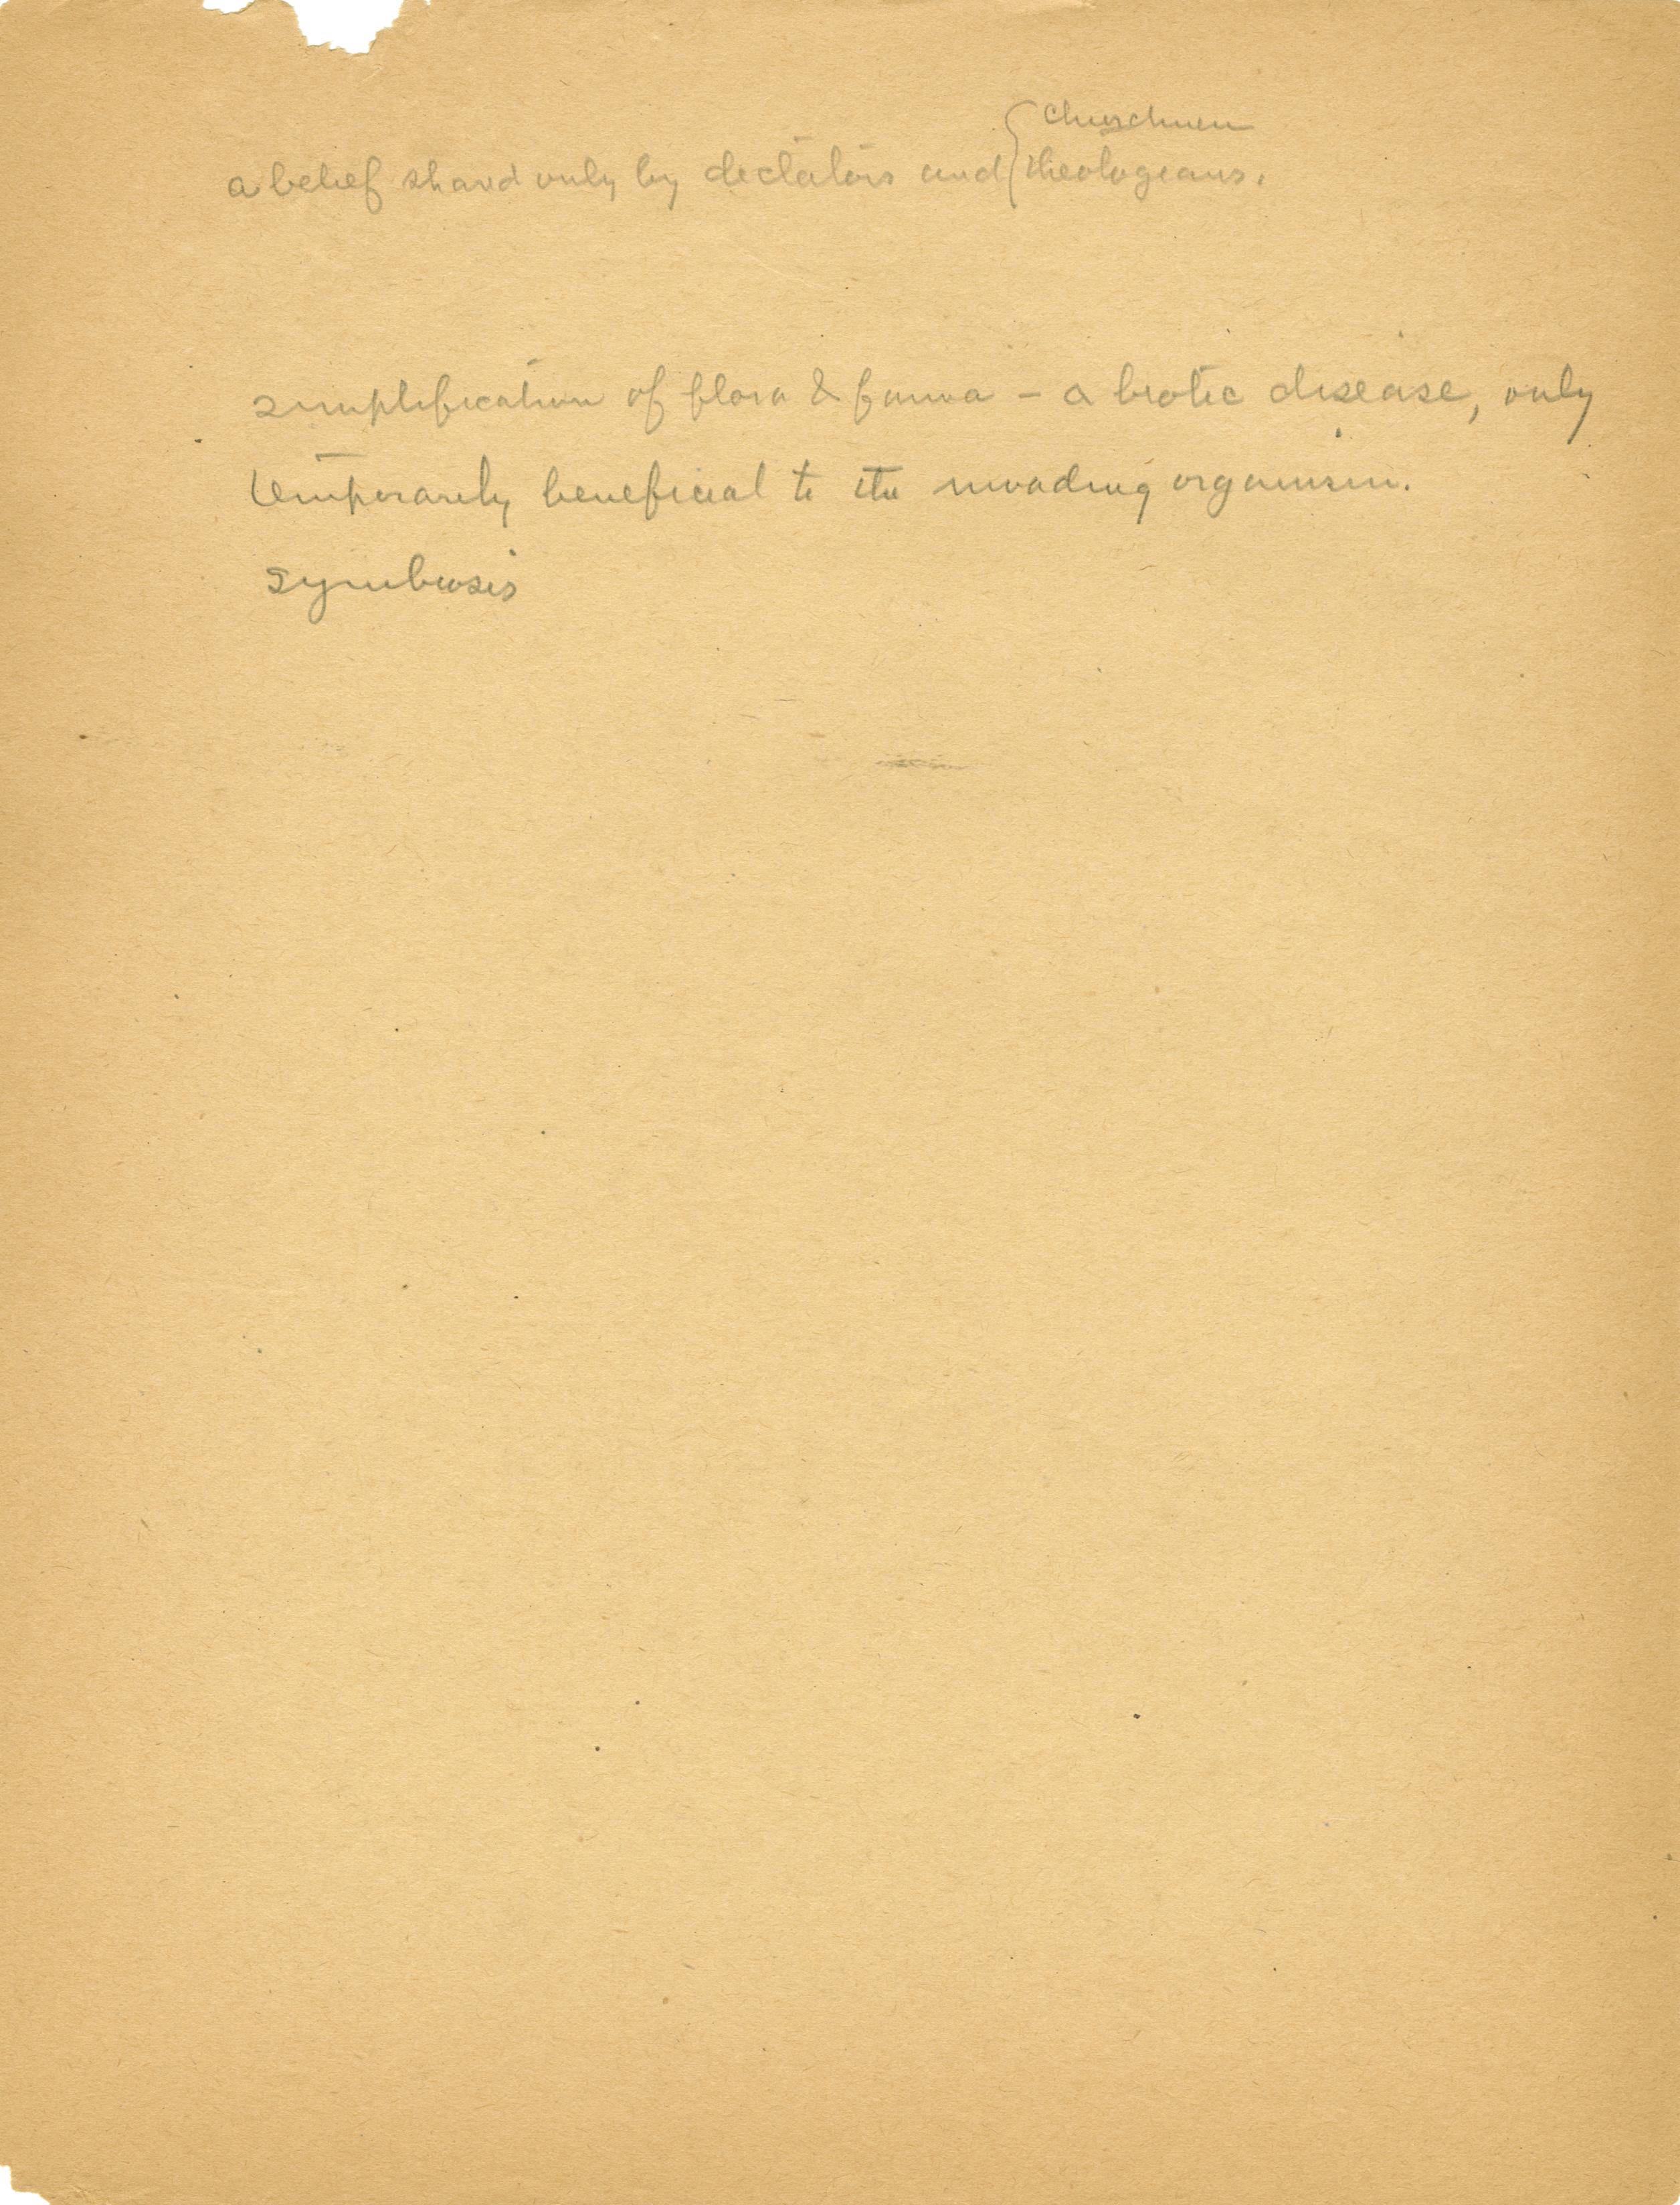 churchmen
a belief shared only by dictators and { theologians.
simplification of flora & fauna – a biotic disease, only
temporarily beneficial to the invading organism.
symbiosis